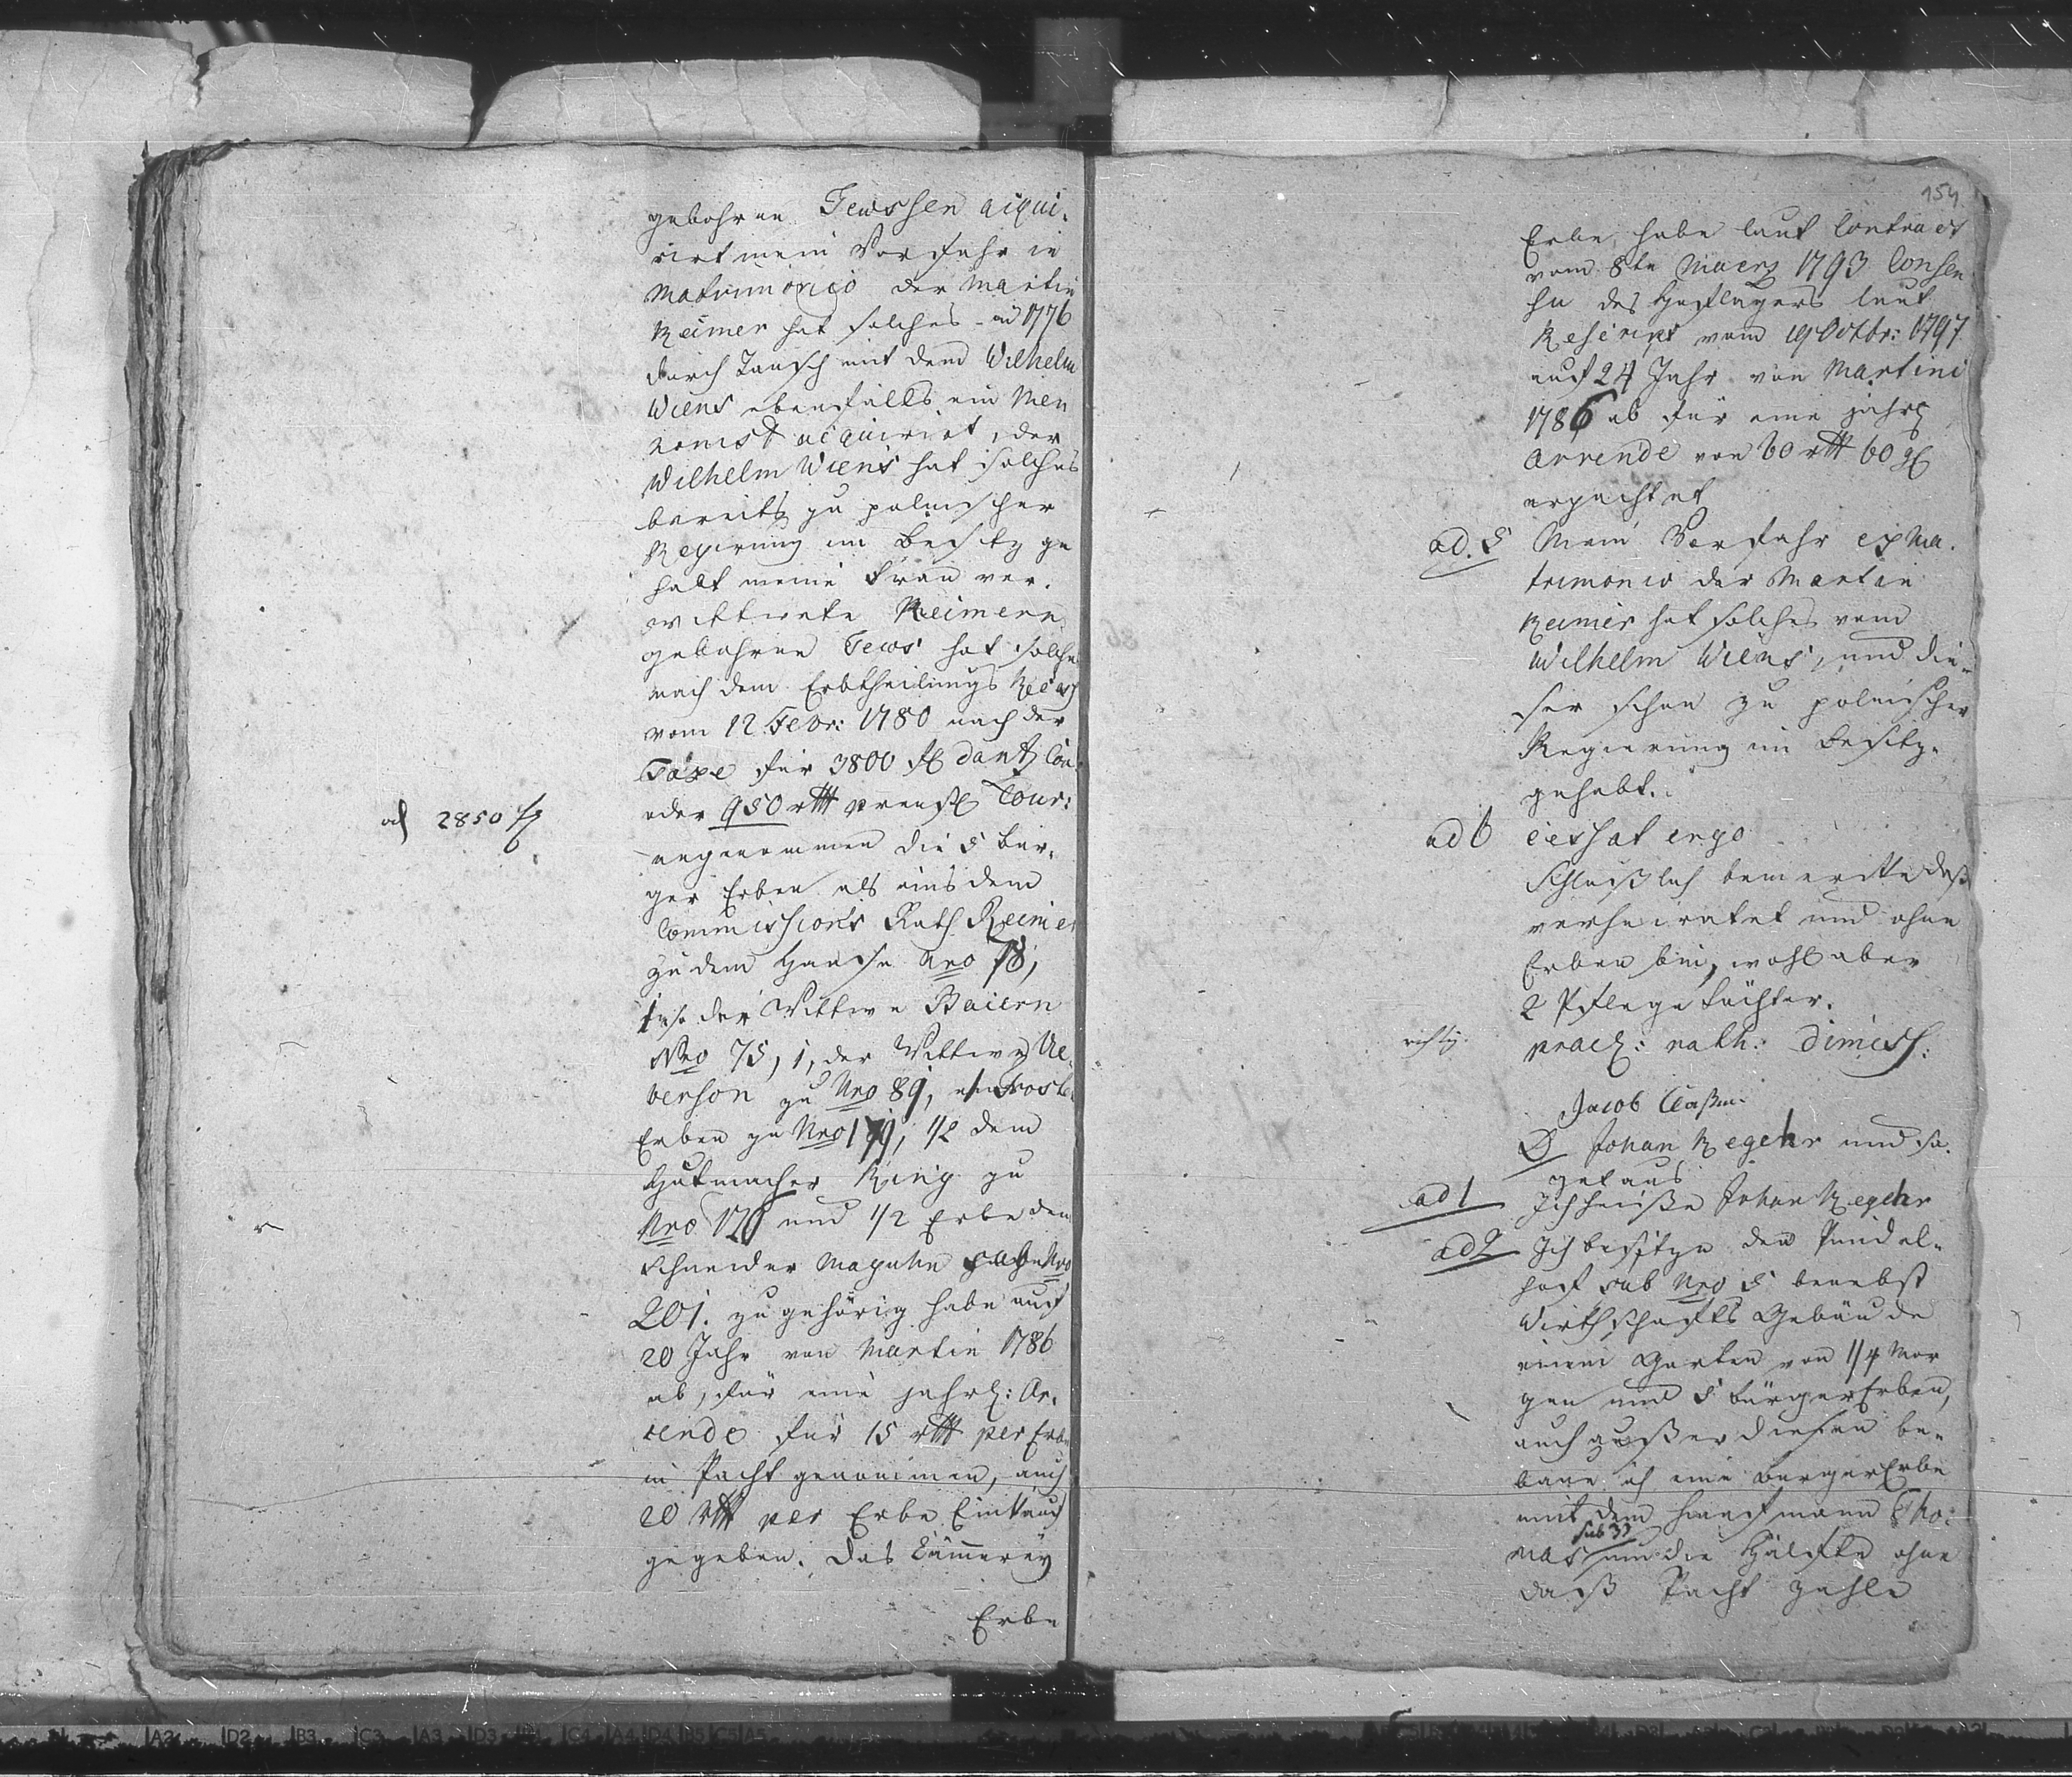 gebohrne Tewssen acqui-
rirt mein Vorfahr in
Matrimonio der Martin
Reimer hat solches ad 1776
durch Tausch mit dem Wilhelm
Wiens ebenfalls ein Men
nonist acquirirt, der
Wilhelm Wiens hat solches
bereits zu polnischer
Regierung im Besitz ge
habt meine Frau ver-
wittwete Reimern
gebohrne Tews hat solche
nach dem Erbtheilungs Recess
vom 12 Febr: 1780 nach der
Taxe für 3800 fl dantz Cou
oder 950 rtt preuß Cour:
2850 fl
angenommen die 5 Bür-
ger Erben als eins dem
Commissions Rath Reimer
zu dem Hause Nro 78,
der Wittwe Baiern
Nro 75, 1, der Wittwe Ue
berson zu Nro 89,
Erben zu Nro 179, 1/2 dem
Hutmacher König zu
Nro 126 und 1/2 Erbe dem
Schneider Maguhn Nro
201. zugehörig habe auf
20 Jahr von Martin 1786
ab, für eine jahrl: Ar-
rende für 15 rtt per Erbe
in Pacht genommen, auch
20 rtt per Erbe Einkauf
gegeben. Das Cämmerey
Erbe
154
Erbe, habe laut Contract
vom 8te Maerz 1793 Consen
su des Hoflagers laut
Rescript vom 19 Octbr: 1797
auf 24 Jahr von Martini
1786 ab für eine jährl
Arrende von 60 rtt 60 gl
erpachtet
ad. 5 Mein Vorfahr ex Ma-
trimonio der Martin
Reimer hat solches vom
Wilhelm Wiens, und die-
ser schon zu polnischer
Regierung im Besitz-
gehabt.
ad 6 cessat ergo
Schlüßlich bemerkte daß
verheiratet und ohne
Erben bin, wohl aber
2 Pflege Töchter.
richtig. prael: rath: dimiss:
Jacob Claßen
D Johan Regehr und sa-
get aus
ad 1 Ich heiße Johan Regehr
ad 2 Ich besitze den
hof sub Nro 5 benebst
Wirthschafts Gebäude
einem Garten von 1/4 Mor
gen und 5 Bürger Erben,
auch außer diesen be-
baue ich eine Bürger Erbe
mit dem Kaufmann Tho-
sub 33
mas um die Hälfte ohne
daß Pacht zahle